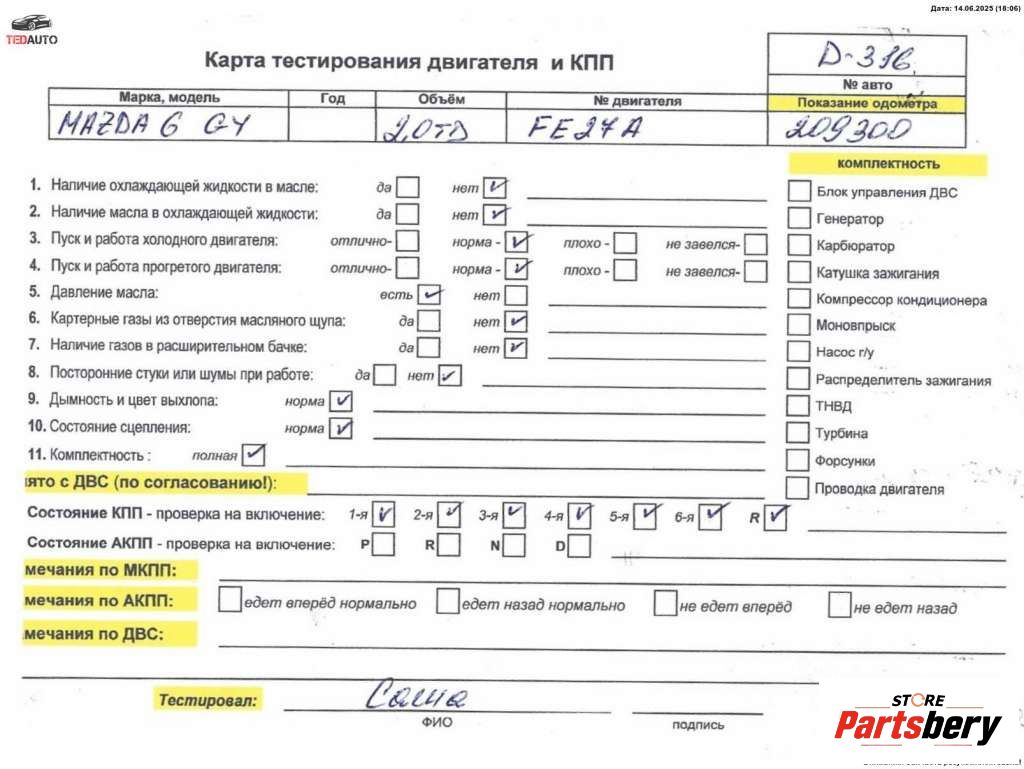 Дата: 14.06.2025 (18:06)
TEDAUTO
Карта тестирования двигателя и КПП
D-316
№ авто
Марка, модель Год Объём № двигателя Показание одометра
MAZDA 6 GY 2,0TD FE27A 209300
комплектность
1. Наличие охлаждающей жидкости в масле: да нет
Блок управления ДВС
2. Наличие масла в охлаждающей жидкости: да нет
Генератор
3. Пуск и работа холодного двигателя: отлично- норма - плохо - не завелся-
Карбюратор
4. Пуск и работа прогретого двигателя: отлично- норма - плохо - не завелся-
Катушка зажигания
5. Давление масла: есть нет
Компрессор кондиционера
6. Картерные газы из отверстия масляного щупа: да нет
Моновпрыск
7. Наличие газов в расширительном бачке: да нет
Насос г/у
8. Посторонние стуки или шумы при работе: да нет
Распределитель зажигания
9. Дымность и цвет выхлопа: норма
ТНВД
10. Состояние сцепления: норма
Турбина
11. Комплектность : полная
Форсунки
ято с ДВС (по согласованию!):
Проводка двигателя
Состояние КПП - проверка на включение: 1-я 2-я 3-я 4-я 5-я 6-я R
Состояние АКПП - проверка на включение: P R N D
мечания по МКПП:
мечания по АКПП: едет вперёд нормально едет назад нормально не едет вперёд не едет назад
мечания по ДВС:
Тестировал: Саша
ФИО подпись
STORE
Partsbery